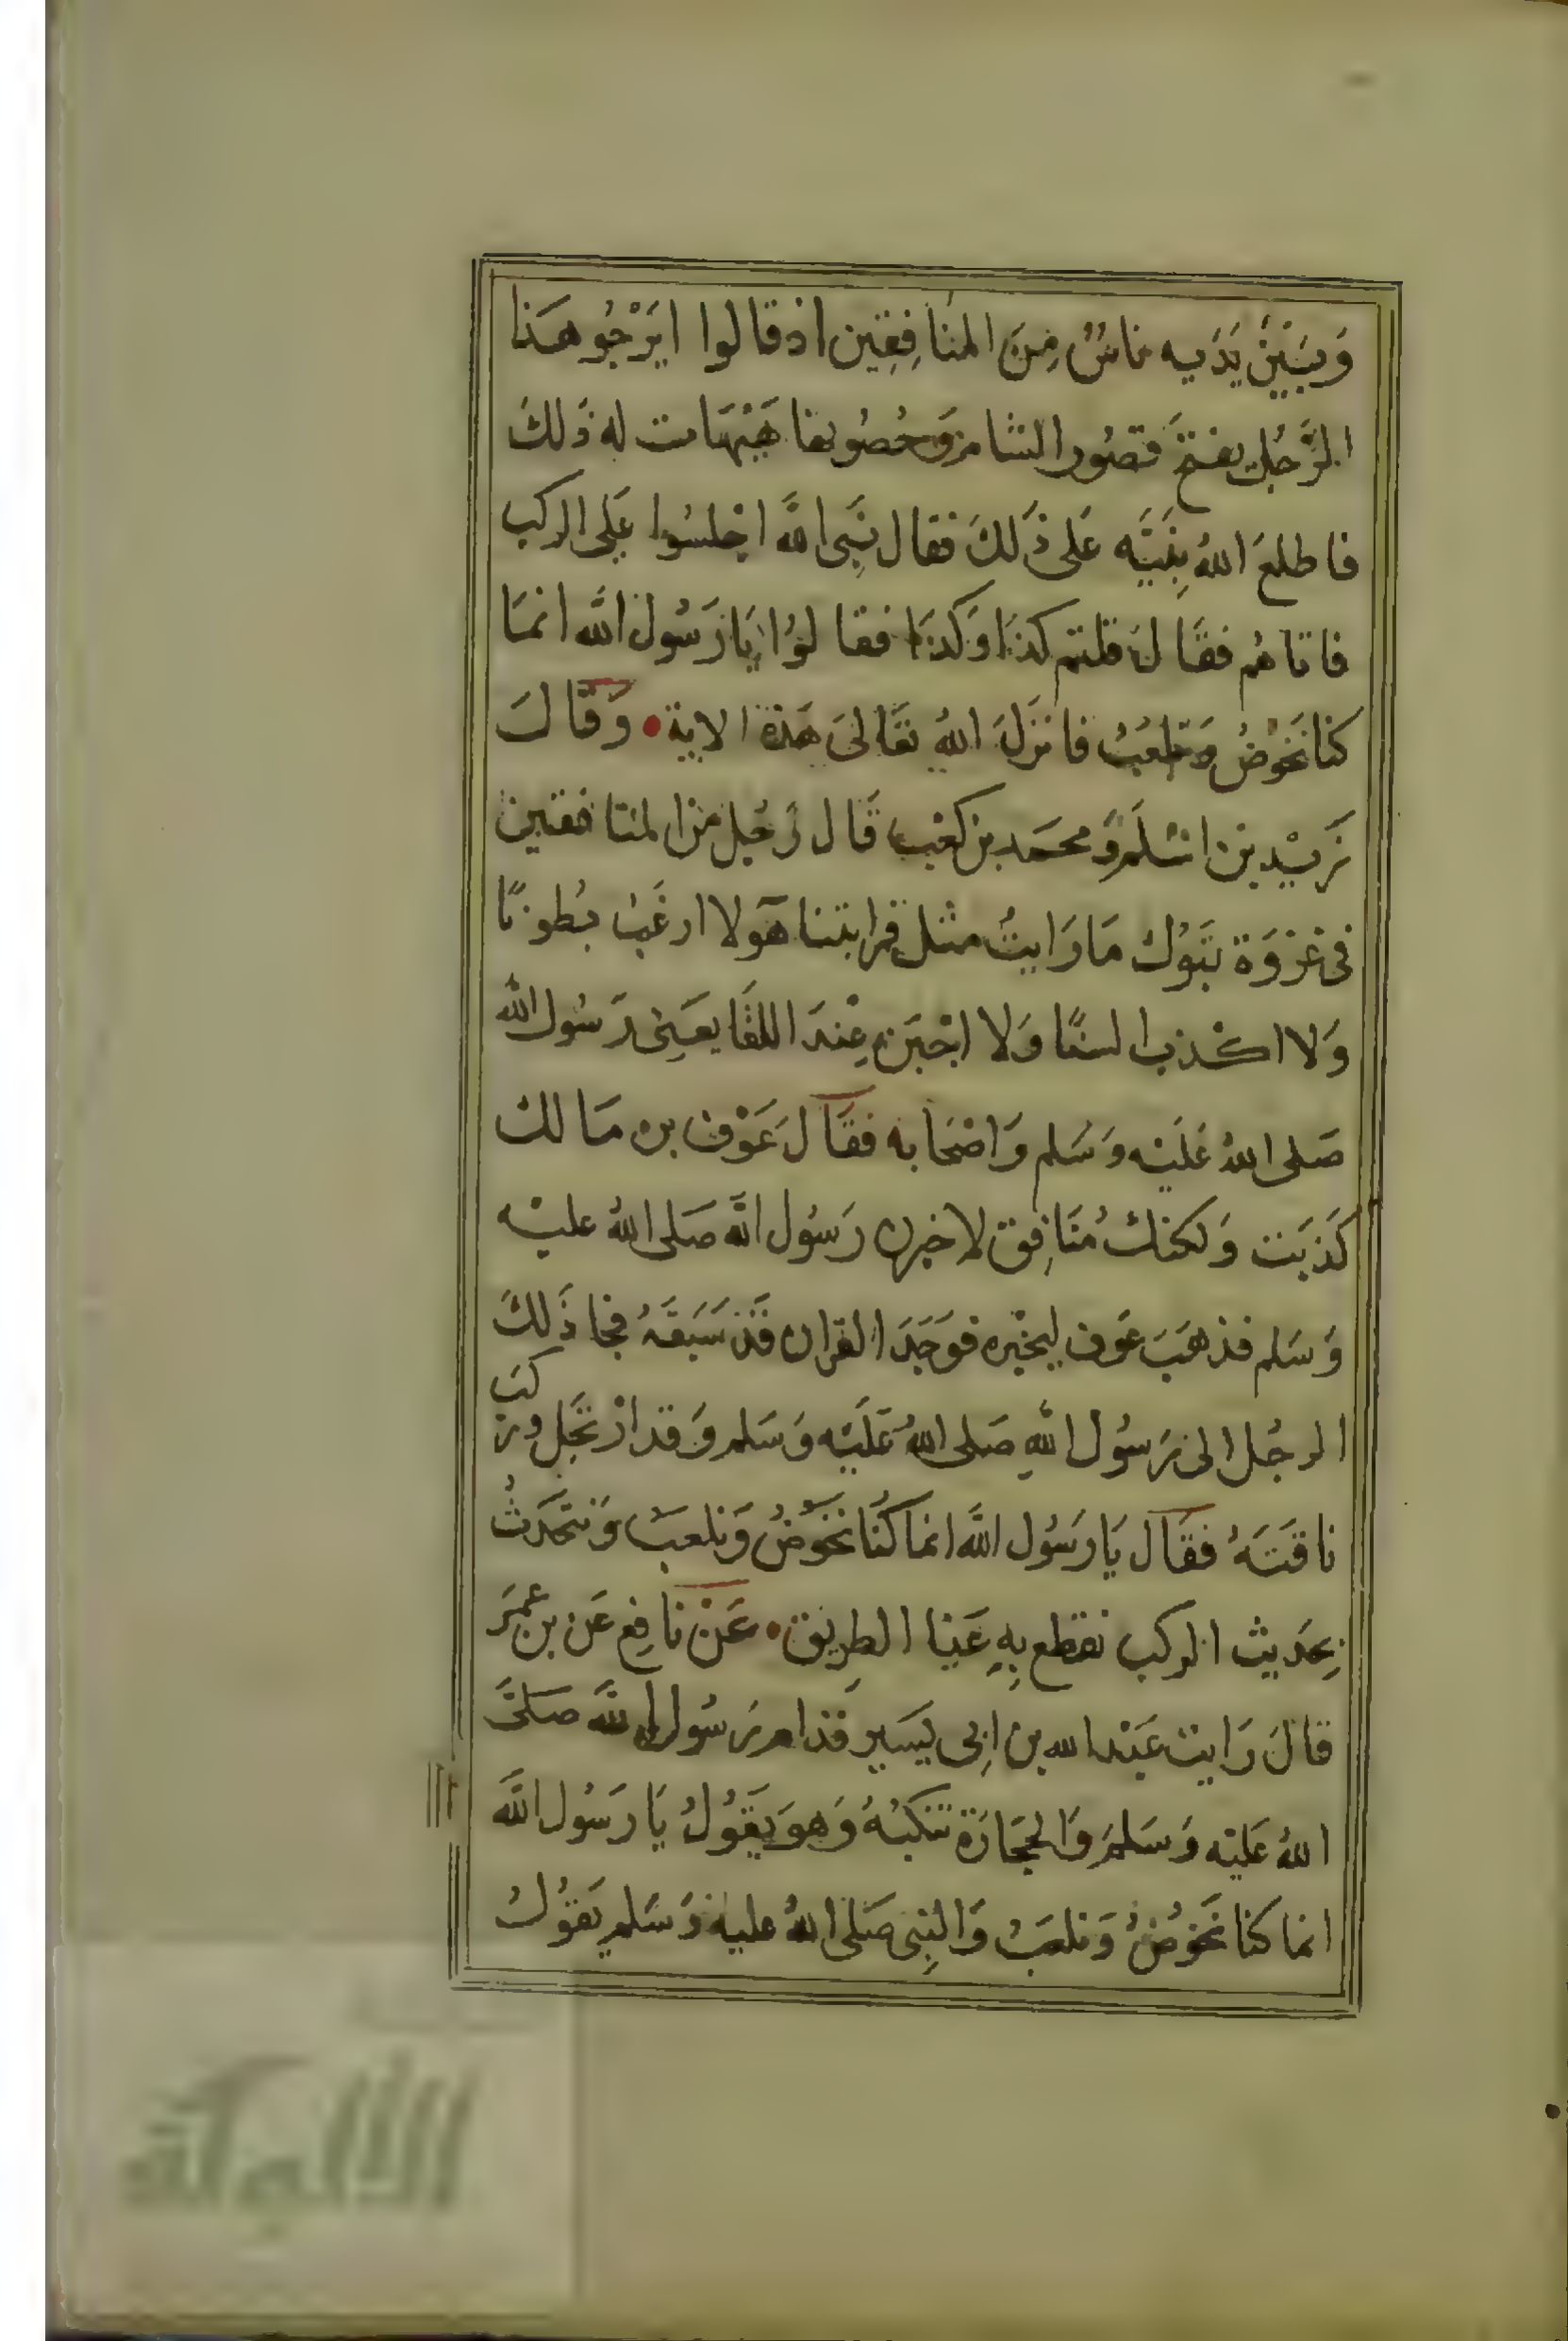 وَبَيْنَ يَدَيه ناسٌ مِنَ المنَافِقِين اذ قالوا ايَرْجُو هَذا
الرَّجُل يفتحَ قصُور الشام وَحُصُونها هَيْهَات له ذَلكَ
فاطلعَ اللهُ نِبَيّه عَلى ذَلكَ فقال نَبِى الله اجْلسُوا عَلى الركب
فاتاهُم فقَال قلتم كذا وَكَذا فقالوُا يَا رَسُول الله انمَا
كنا نَخوْضُ وَنلعَبُ فانزَلَ اللهُ تعَالىَ هَذة الاية • وَقَالَ
زَيْد بن اسْلَم وَمحمَد بن كعْب قَال رَجُل من المنافقين
فى غزوَة تَبَوُك مَا رَايتُ مثل قرابتنا هَٓولا ارغَبُ بُطونًا
وَلا اكْذب السنًا وَلا اجْبَن عِندَ اللقَا يعَنِى رَسُول الله
صَلى اللهُ عَليْه وَسَلم وَاصْحَابه فقَالَ عَوْف بن مَالك
كَذبَت وَلكنكْ مُنَافِق لاخبرن رَسُول الله صَلى اللهُ عليْه
وَسَلم فذهَبَ عَوف ليخْبره فوَجَدَ القران قَدْ سَبَقَهُ فجا ذَلكَ
الرجُل الى رَسُول اللهِ صَلى اللهُ عَلَيْه وَسَلم وَقد ارْتَحَل وركبَ
ناقَتَهُ فقَال يَا رَسُول اللَّه انما كُنا نخَوْضُ وَنلعبْ وَنتَحَدثُ
بِحَديث الركب نقطع بِهِ عَنا الطِريق • عَنْ نَافِع عَن بن عمَر
قالَ رَايت عَبْد الله بن ابِى يسَير قدام رَسُول اللَّه صَلىَّ
اللهُ عَليْه وَسَلمَ وَالحجَارَة تنكبُهُ وَهوَ يَقوُلُ يَا رَسُول اللَّه
انما كنا نَخوُضُ وَنلعَبُ وَالنِبى صَلى اللهُ عليه وَسَلم يَقوُلُ
الألوكة